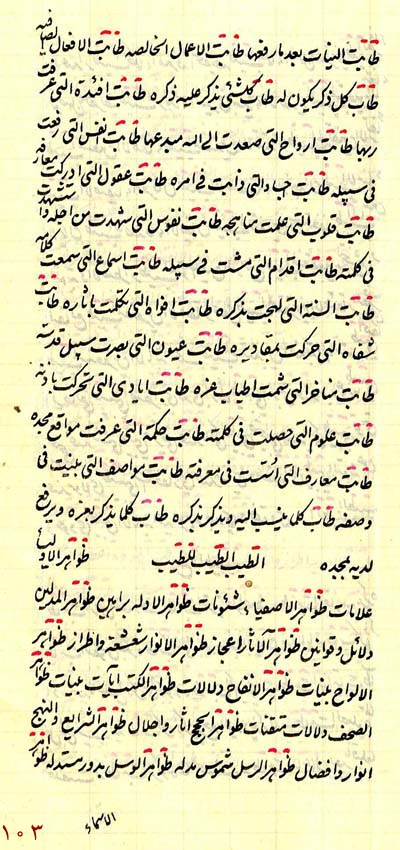 طابت النيات بعد ما رفعها طابت الاعمال الخالصه طابت الافعال الصافيه
طاب كل ذكر يكون له طاب كلشئى يذكر عليه ذكره طابت افئدة التى عرفت
ربها طابت ارواح التى صعدت الى الله مبدعها طابت نفس التى رفعت
فى سبيله طابت التى ذابت فى امره طابت عقول التى ادركت معارفه
طابت قلوب التى علمت مناهجه طابت نفوس التى شهدت من اجله واستشهدت
فى كلمته طابت اقدام التى مشت فى سبيله طابت اسماع التى سمعت كلامه
طابت السنة التى لهجت بذكره طابت افواه التى تكلمت باثاره طابت
شفاه التى حركت بمقاديره طابت عيون التى بصرت سبيل قدسه
طابت مناخر التى شمت اطياب عزه طابت ايادى التى تحركت باذنه
طابت علوم التى حصلت فى كلمته طابت حكمة التى عرفت مواقع مجده
طابت معارف التى اسست فى معرفته طابت مواصف التى بنيت فى
وصفه طاب كلما ينسب اليه ويذكر بذكره طاب كلما يذكر بعزه ويرفع
لديه بمجده الطيب الطيب للطيب ظواهر الاوليا
علامات ظواهر الاصفياء شئونات ظواهر الادله براهين ظواهر المدلين
دلائل وقوانين ظواهر الآثار اعجاز ظواهر الانوار شعشعة واطراز ظواهر
الالواح بينات ظواهر دلالات ظواهر الكتب آيات بينات ظواهر
الصحف دلالات متقنات ظواهر الحجج اثار واجلال ظواهر الشرايع والنهج
انوار وافضال ظواهر الرسل شموس مدله ظواهر الوسل بدور مستدله ظواهر
الاسماء
١٠٣